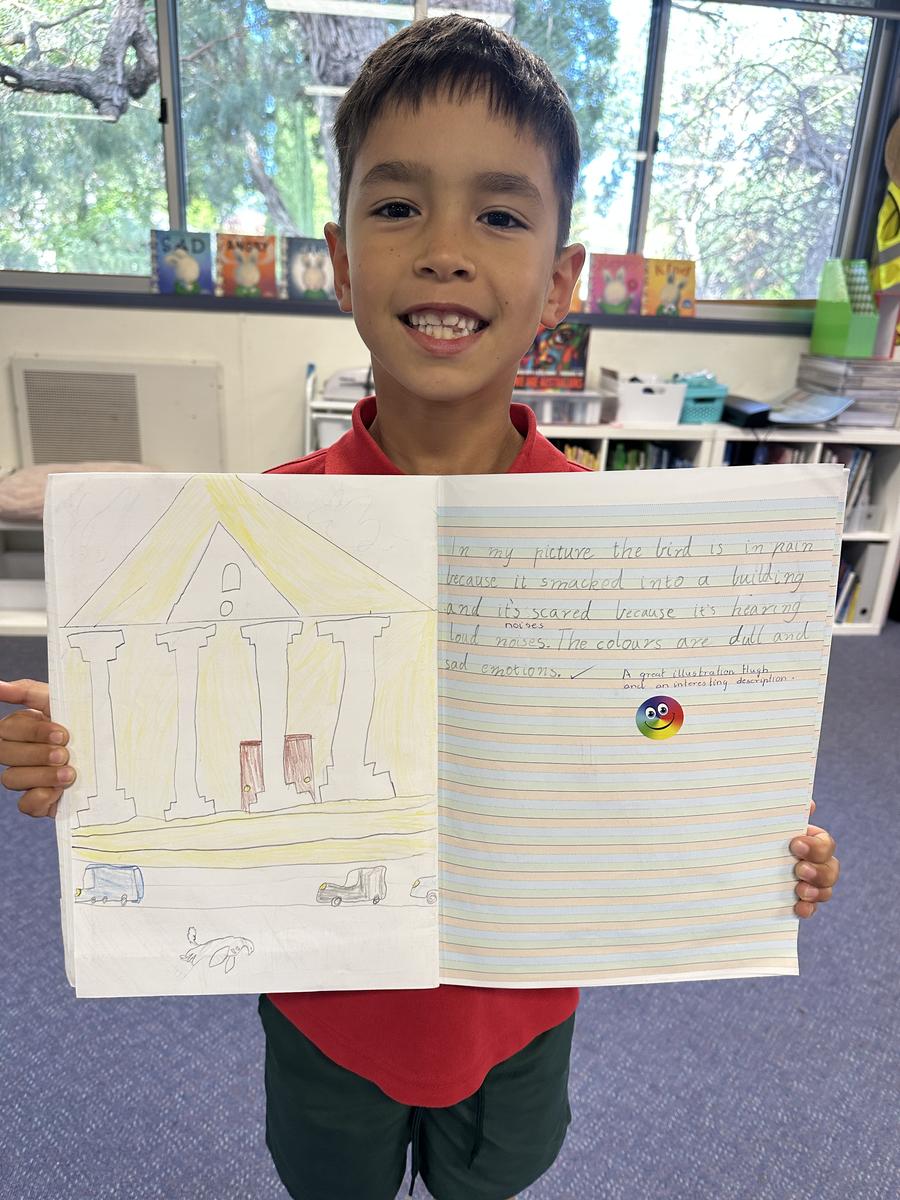 SAD
ANGRY
KIND
In my picture the bird is in pain
because it smacked into a building
and it's scared because it's hearing
noises
loud noises. The colours are dull and
sad emotions. ✓
A great illustration Hugh
and an interesting description.